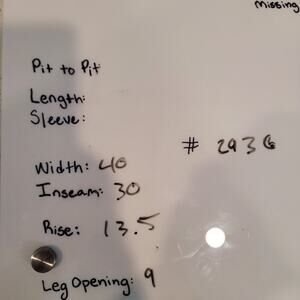 Missing
Pit to Pit
Length:
Sleeve:
# 2936
Width: 40
Inseam: 30
Rise: 13.5
Leg Opening: 9